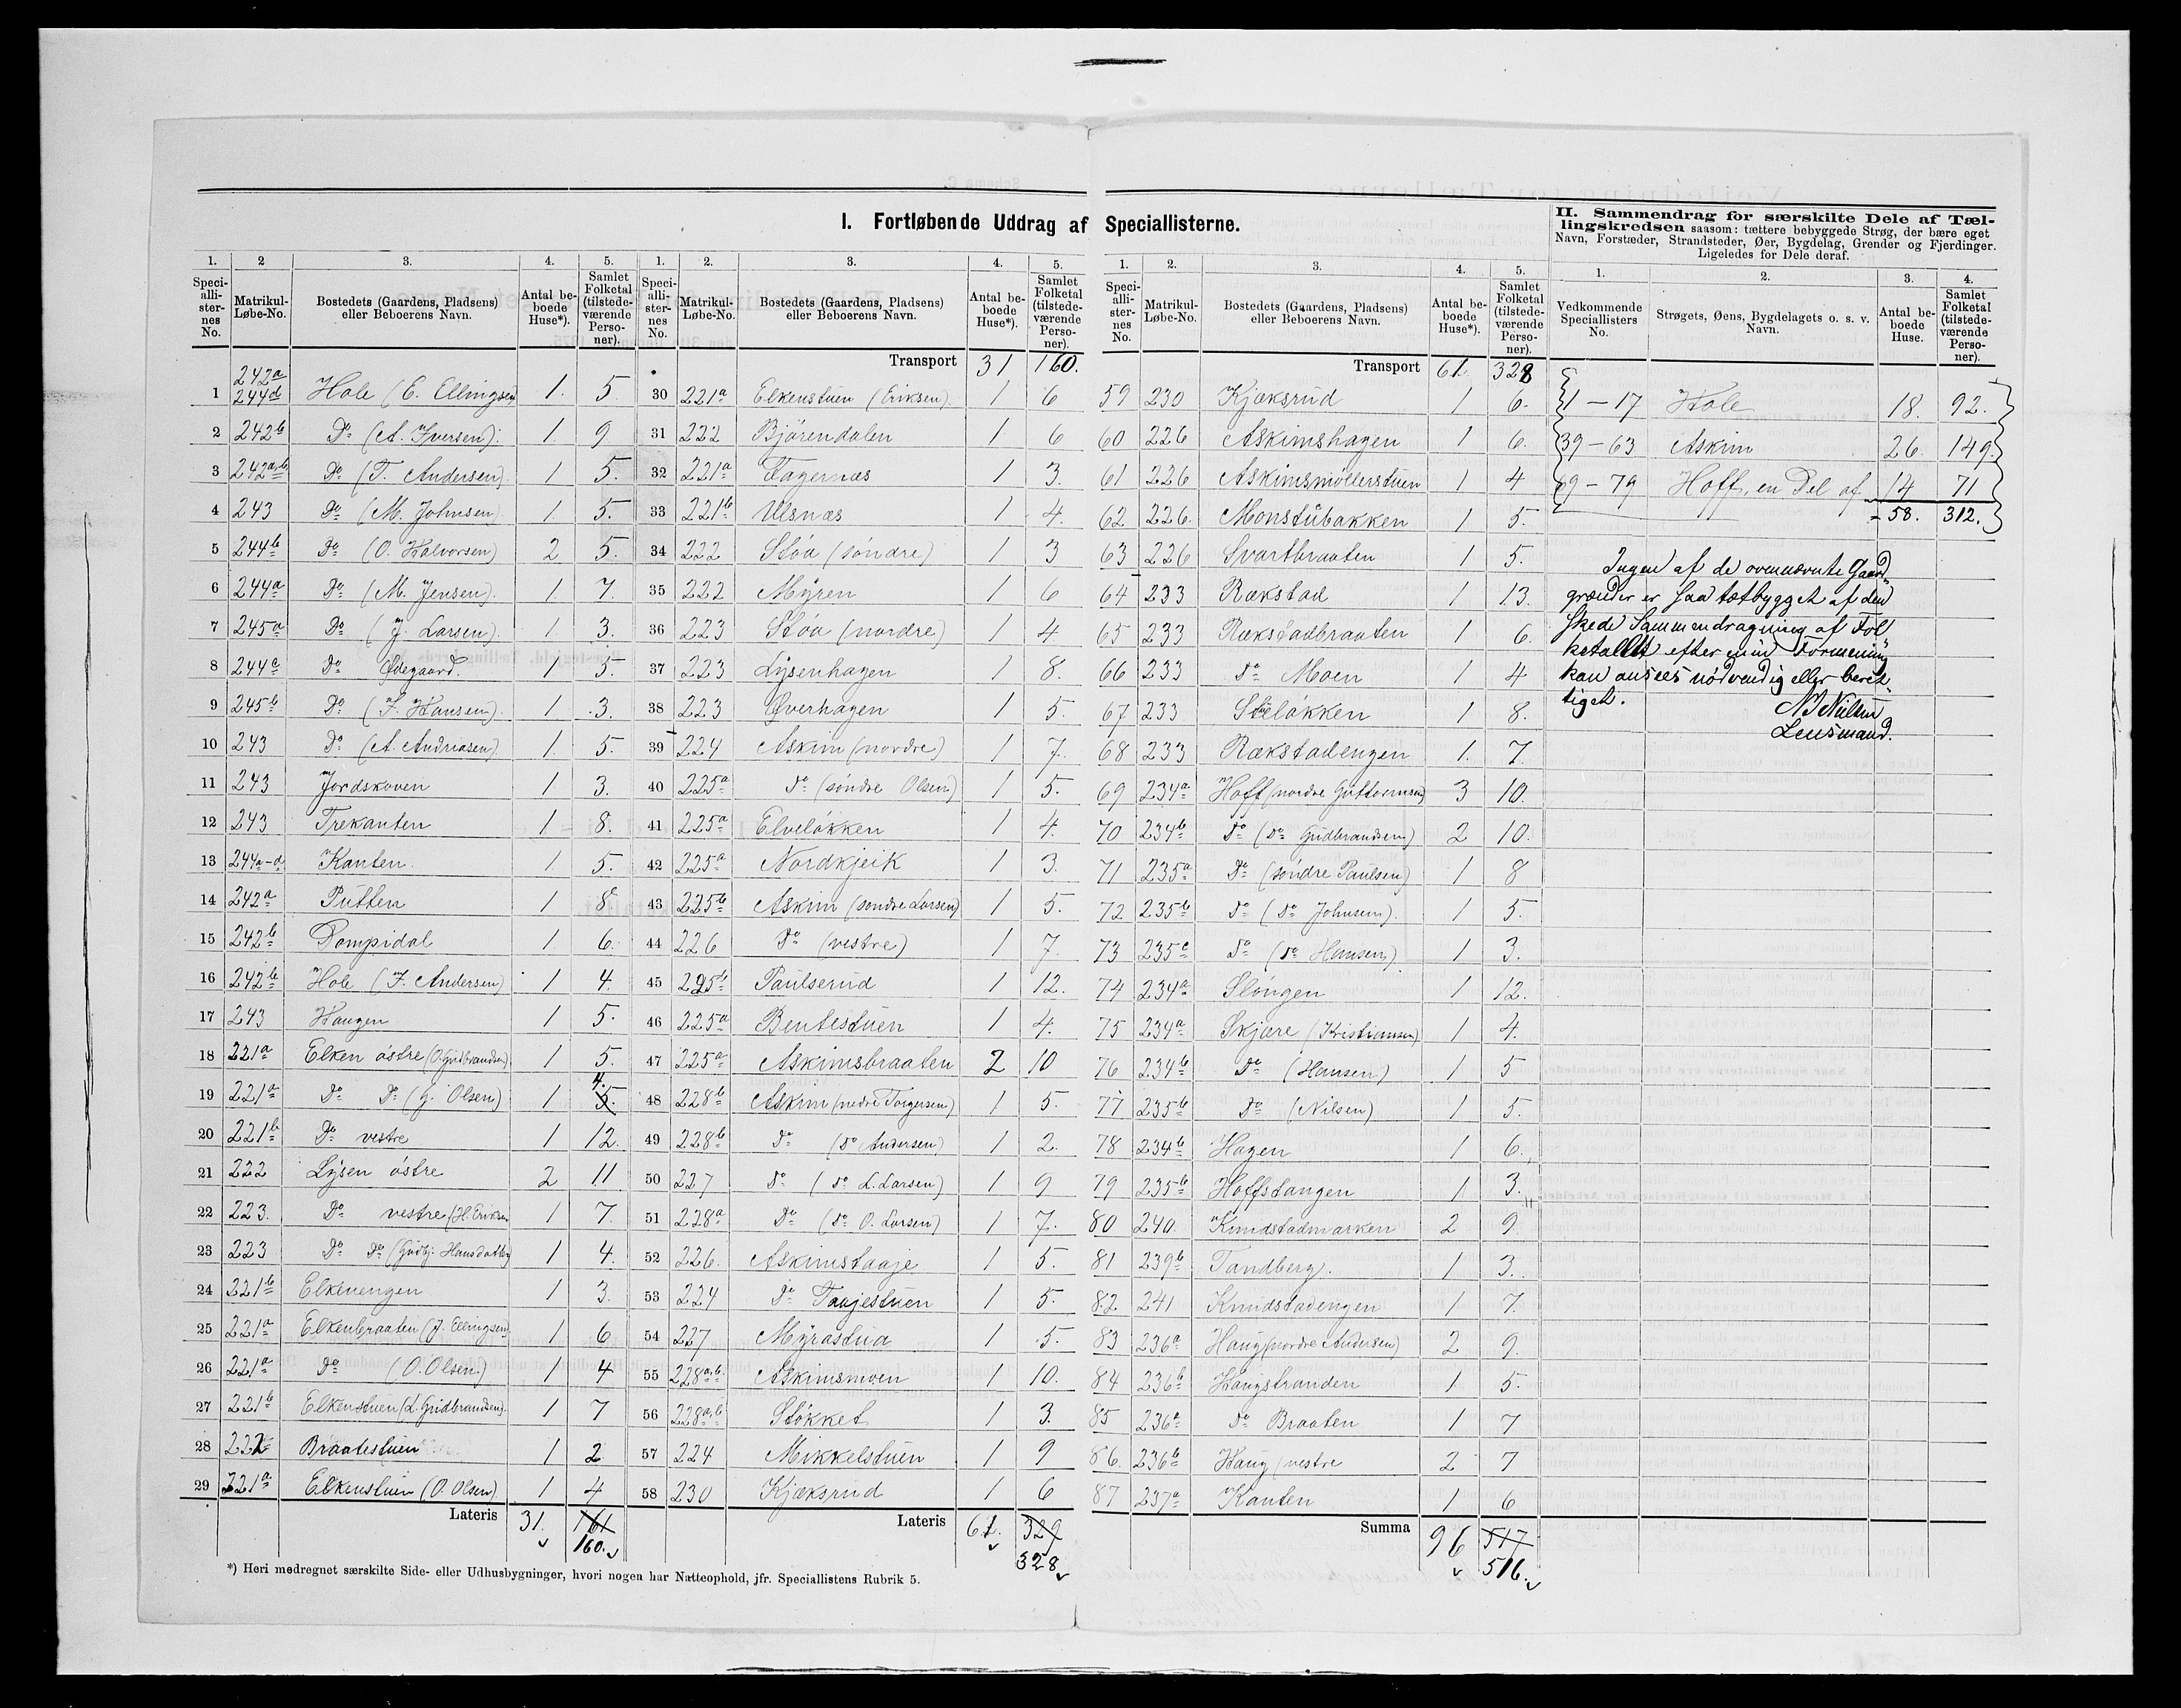 I. Fortløbende Uddrag af Speciallisterne.
1. 2 3. 4. 5.
Specialisternes No. Matrikul-Løbe-No. Bostedets (Gaardens, Pladsens) eller Beboerens Navn. Antal beboede Huse*). Samlet Folketal (tilstedeværende Personer).
1 242a 244d Hole (E. Ellingsen) 1. 5.
2 242b Do (A. Iversen). 1. 9
3 242a,b Do (T. Andersen). 1 5.
4 243 Do (M. Johnsen). 1 5.
5 244b Do (O. Halvorsen) 2 5.
6 244a Do (M. Jensen). 1 7.
7 245a Do (J. Larsen). 1. 3.
8 244c Do Ødegaard. 1 5.
9 245b Do (F. Hansen). 1 3.
10 243 Do (A. Andriasen) 1. 5.
11 243 Jordskoven 1 3.
12 243 Trekanten 1 8.
13 244a-d Kanten. 1 5.
14 242a Putten 1 8
15 242b Pompidal 1 6.
16 242b Hole (F. Andersen) 1 4.
17 243 Haugen 1 5.
18 221a Elken østre (O. Gudbrandsen). 1 5.
19 221a Do Do (G. Olsen) 1 5. 4.
20 221b Do vestre 1 12.
21 222 Lysen østre 2 11
22 223. Do vestre (H. Eriksen 1 7.
23 223 Do Do (Gudbj. Hansdatter 1 4.
24 221b Elkenengen 1 3.
25 221a Elkenbraaten (J. Ellingsen) 1 6
26 221a Do (O. Olsen) 1 4
27 221b Elkenstuen (L. Gudbrandsen). 1 7
28 222 Braatestuen 1 2
29 221a Elkenstuen (O. Olsen) 1 4
Lateris 31. 161
160.
*) Heri medregnet særskilte Side- eller Udhusbygninger, hvori nogen har Natteophold, jfr. Speciallistens Rubrik 5.
1. 2. 3. 4. 5.
Specialisternes No. Matrikul-Løbe-No. Bostedets (Gaardens, Pladsens) eller Beboerens Navn. Antal beboede Huse*). Samlet Folketal (tilstedeværende Personer).
Transport 31 160.
30 221a Elkenstuen (Eriksen). 1 6
31 222 Bjørendalen 1 6
32 221a Fagernæs 1 3.
33 221b Ulsnæs 1 4.
34 222 Støa (søndre) 1 3
35 222 Myren 1 6
36 223 Støa (nordre) 1 4
37 223 Lysenhagen 1 8.
38 223 Øverhagen 1 5.
39 224 Askim (nordre) 1 7.
40 225a Do (søndre Olsen) 1 5.
41 225a Elveløkken 1 4.
42 225a Nordkjeik 1 3.
43 225b Askim (søndre Larsen) 1 5.
44 226 Do (vestre) 1 7.
45 225b Paulserud 1 12.
46 225a Bentestuen 1 4.
47 225a Askimsbraaten 2 10
48 228b Askim (nedre Torgersen) 1 5.
49 228b Do (Do Andersen) 1 2.
50 227 Do (Do L. Larsen) 1 9
51 228a Do (Do O. Larsen) 1 7.
52 226. Askimstaaje 1 5.
53 224 Do Taajestuen 1 5.
54 227 Myrastua 1 5.
55 228a,b Askimsmoen 1 10.
56 228a,b Støkket 1 3.
57 224 Mikkelstuen 1 9
58 230 Kjæksrud 1 6
Lateris 61. 329
328.
1. 2. 3. 4. 5.
Specialisternes No. Matrikul-Løbe-No. Bostedets (Gaardens, Pladsens) eller Beboerens Navn. Antal beboede Huse*). Samlet Folketal (tilstedeværende Personer).
Transport 61. 328
59 230 Kjæksrud 1 6.
60 226 Askimshagen 1 6.
61 226 Askimsmøllerstuen 1 4
62 226. Monstubakken 1 5.
63 226 Svartbraaten 1 5.
64 233 Rækstad 1 13.
65 233 Rækstadbraaten 1 6.
66 233 Do Moen 1 4
67 233 1 8.
68 233 Rækstadengen 1. 7.
69 234a Hoff (nordre Guttormsen) 3 10.
70 234b Do (Do Gudbrandsen) 2 10.
71 235a Do (søndre Paulsen) 1 8
72 235b Do (Do Johnsen). 1 5.
73 235c Do (Do Hansen) 1 3.
74 234a Sløngen 1 12.
75 234a Skjære (Kristiansen) 1 4.
76 234b Do (Hansen) 1 5
77 235b Do (Nilsen) 1 5.
78 234b Hagen 1 6.
79 235b Hoffstangen 1 3.
80 240. Knudstadmarken 2 9.
81 239b Tandberg. 1 3.
82 241 Knudstadengen 1 7.
83 236a Haug (nordre Andersen) 2 9.
84 236b Haugstranden 1 5.
85 236a Do Braaten 1 7
86. 236b Haug (vestre 2 7
87 237a Kanten 1 6
Summa 96 517
516.
II. Sammendrag for særskilte Dele af Tæl-
lingskredsen saasom: tættere bebyggede Strøg, der bære eget
Navn, Forstæder, Strandsteder, Øer, Bygdelag, Grender og Fjerdinger.
Ligeledes for Dele deraf.
1. 2. 3. 4.
Vedkommende Speciallisters No. Strøgets, Øens, Bygdelagets o. s. v. Navn. Antal beboede Huse. Samlet Folketal (tilstedeværende Personer).
1-17 Hole 18. 92.
39-63 Askim 26. 149.
69-79 Hoff, en Del af 14 71
58. 312.
Ingen af de ovennævnte Gaard
grænder er saa tætbygget at den
skede Sammendragning af Fol
ketallet efter min Formening
kan ansees nødvendig eller beret
tiget.
N. Nielsen
Lensmand.